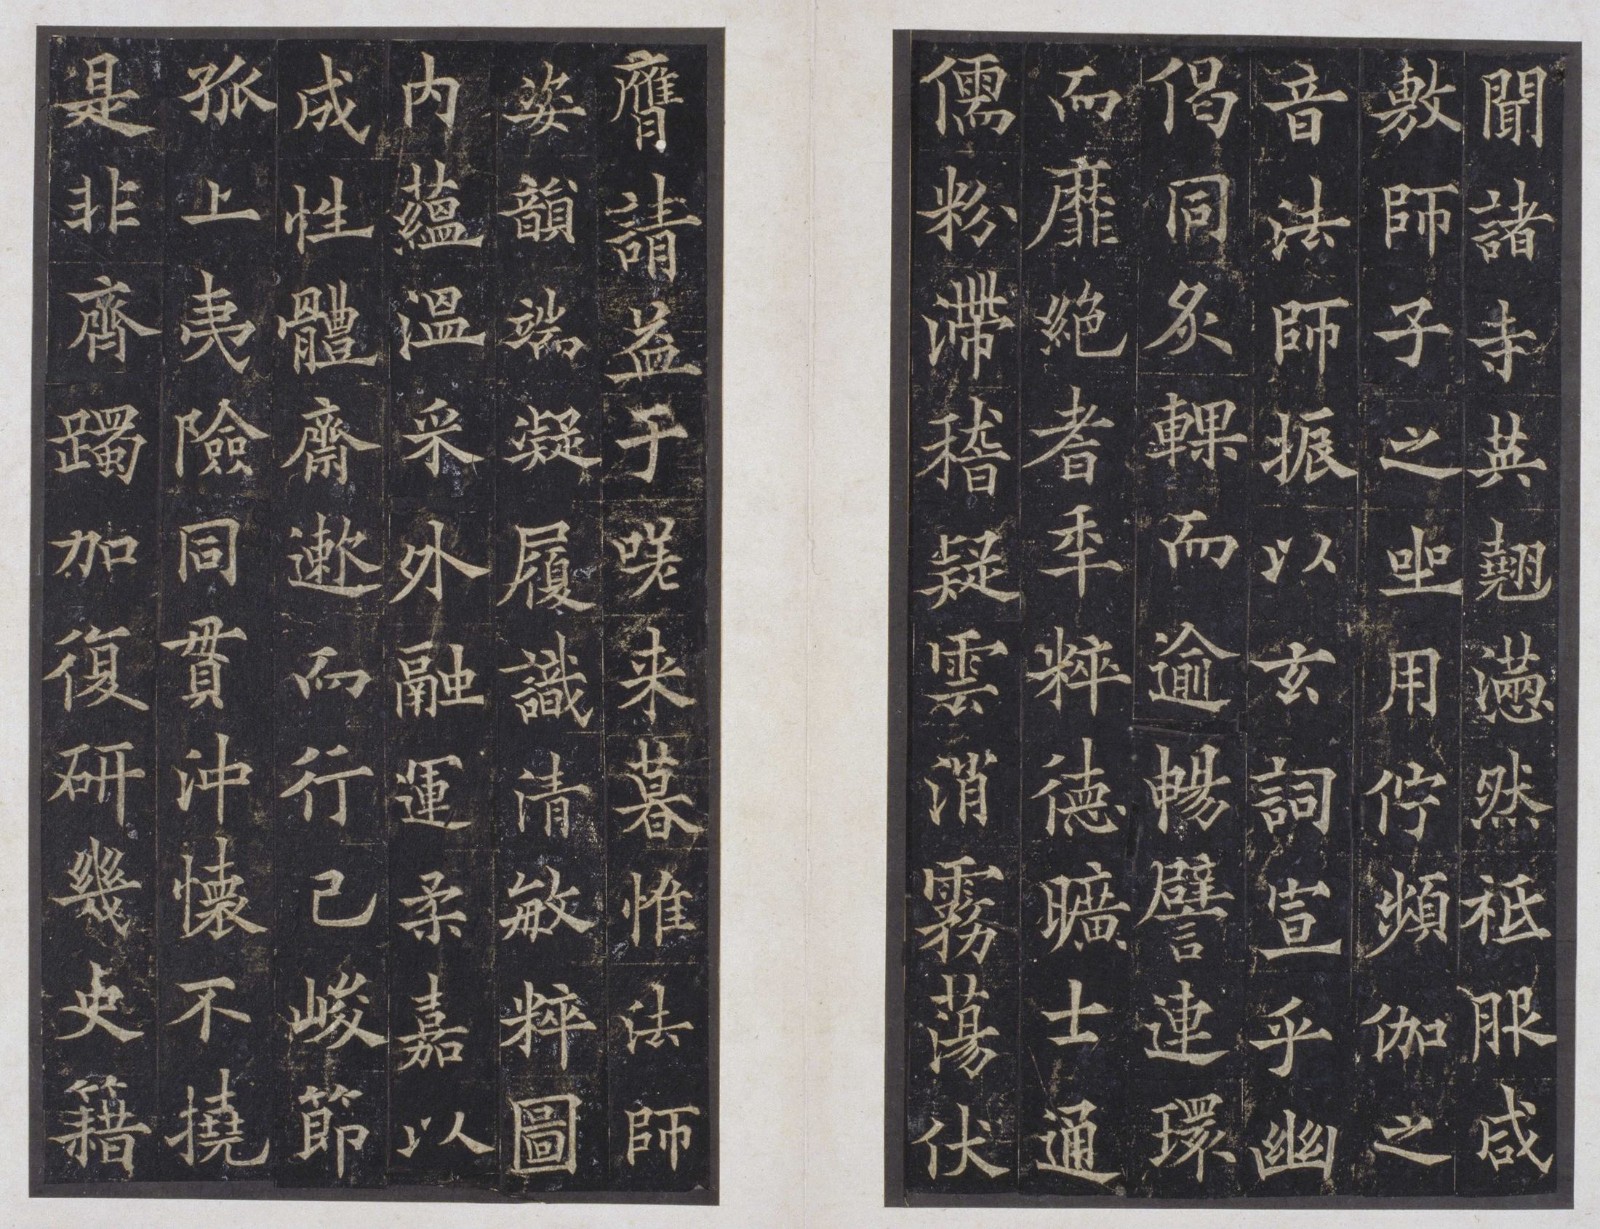 聞諸寺英翹懣然祗服咸
敷師子之㘴用佇頻伽之
音法師振以玄詞宣乎幽
偈同炙輠而逾暢譬連環
而靡絕者年粹德曠士通
儒粉滯稽疑雲消霧蕩伏
膺請益于嗟来暮惟法師
姿韻端凝履識清敏粹圖
内蘊溫采外融運柔嘉以
成性體齋遬而行己峻節
孤上夷險同貫沖懷不撓
是非齊躅加復研幾史籍